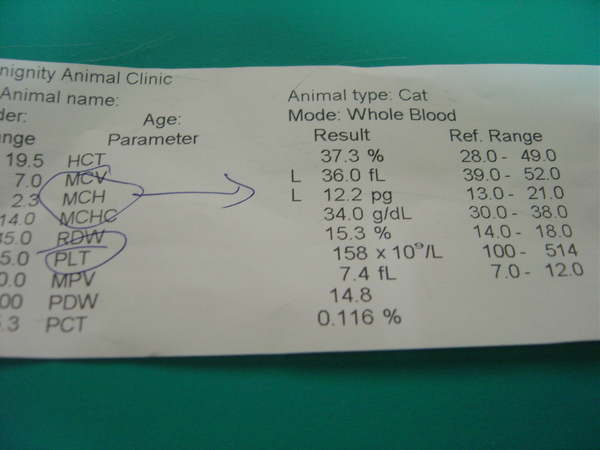 nignity Animal Clinic
Animal name: Animal type: Cat
der: Age: Mode: Whole Blood
nge Parameter Result Ref. Range
19.5 HCT 37.3 % 28.0 - 49.0
7.0 MCV L 36.0 fL 39.0 - 52.0
2.3 MCH L 12.2 pg 13.0 - 21.0
14.0 MCHC 34.0 g/dL 30.0 - 38.0
35.0 RDW 15.3 % 14.0 - 18.0
5.0 PLT 158 x 10⁹/L 100 - 514
0.0 MPV 7.4 fL 7.0 - 12.0
00 PDW 14.8
.3 PCT 0.116 %